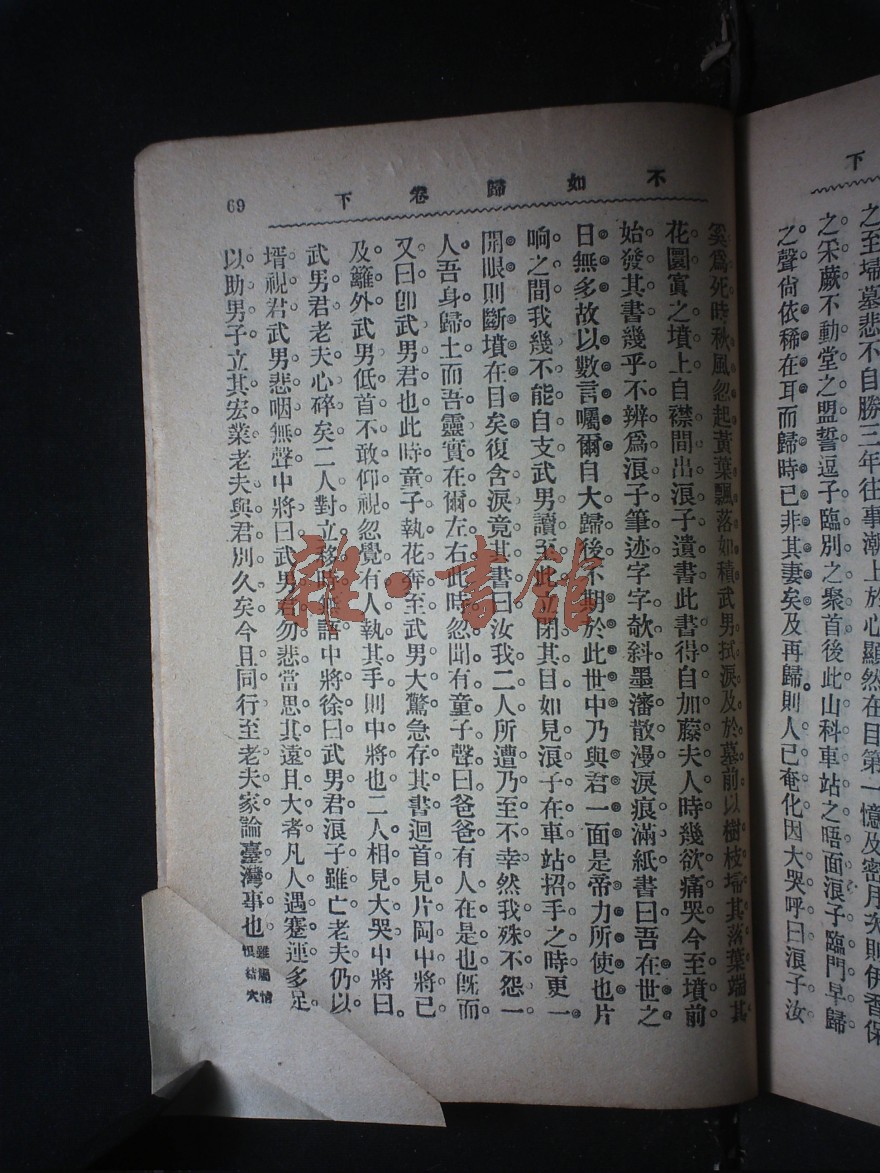 下
之至埽墓悲不自勝三年往事潮上於心顯然在目第一憶及密月次則伊香保
之采蕨不動堂之盟誓逗子臨別之聚首後此山科車站之晤面浪子臨門早歸
之聲尙依稀在耳而歸時已非其妻矣及再歸則人已奄化因大哭呼曰浪子汝
不如歸卷下
69
奚爲死時秋風忽起黃葉飄落如積武男拭淚及於墓前以樹枝埽其落葉端其
花圜寘之墳上自襟間出浪子遺書此書得自加藤夫人時幾欲痛哭今至墳前
始發其書幾乎不辨爲浪子筆迹字字欹斜墨瀋散漫淚痕滿紙書曰吾在世之
日無多故以數言囑爾自大歸後不期於此世中乃與君一面是帝力所使也片
晌之間我幾不能自支武男讀至此立閉其目如見浪子在車站招手之時更一
開眼則斷墳在目矣復含淚竟其書曰汝我二人所遭乃至不幸然我殊不怨一
人吾身歸土而吾靈實在爾左右此時忽聞有童子聲曰爸爸有人在是也旣而
又曰卽武男君也此時童子執花奔至武男大驚急存其書迴首見片岡中將已
及籬外武男低首不敢仰視忽覺有人執其手則中將也二人相見大哭中將曰
武男君老夫心碎矣二人對立移時無語中將徐曰武男君浪子雖亡老夫仍以
壻視君武男悲咽無聲中將曰武男君勿悲當思其遠且大者凡人遇蹇運多足
以助男子立其宏業老夫與君別久矣今且同行至老夫家論臺灣事也
雜·書館